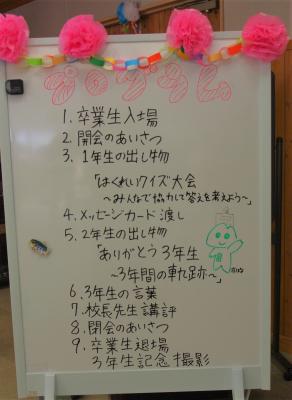 プログラム
1. 卒業生入場
2. 開会のあいさつ
3. 1年生の出し物
「はくれいクイズ大会
～みんなで協力して答えを考えよう～
4. メッセージカード渡し
5. 2年生の出し物
「ありがとう3年生
～3年間の軌跡～」
6. 3年生の言葉
7. 校長先生講評
8. 閉会のあいさつ
9. 卒業生退場
3年生記念撮影